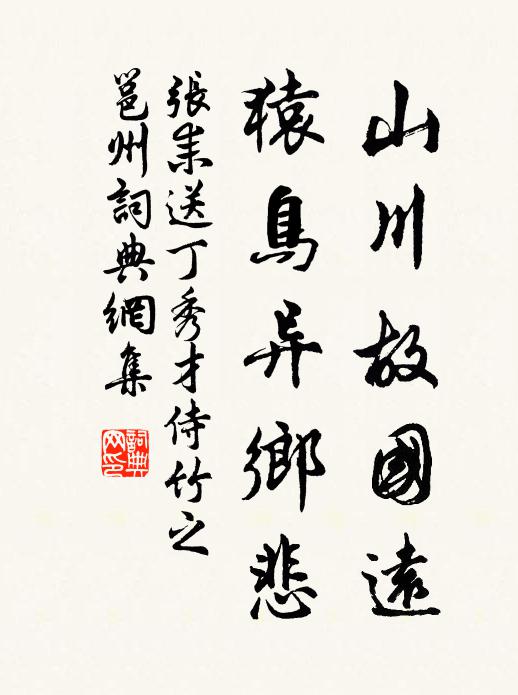 山川故國遠
猿鳥异鄉悲
張耒送丁秀才侍竹之
邕州詞典網集
詞典網印